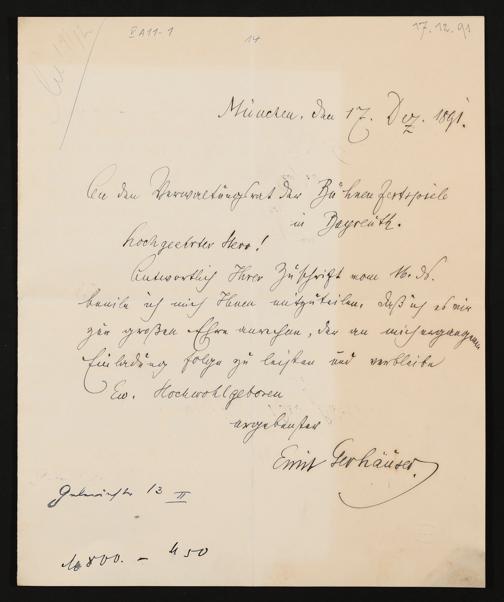 II A 11-1
14
17.12.91
München, den 17. Dez. 1891.
An den Verwaltungsrat der Bühnenfestspiele
in Bayreuth.
Hochgeehrter Herr!
Antwortlich Ihrer Zuschrift vom 16. ds.
beeile ich mich Ihnen mitzuteilen, daß ich es mir
zur großen Ehre anrechne, der an mich ergangenen
Einladung Folge zu leisten und verbleibe
Ew. Hochwohlgeboren
ergebenster
Emil Gerhäuser.
13 II
800. – 450